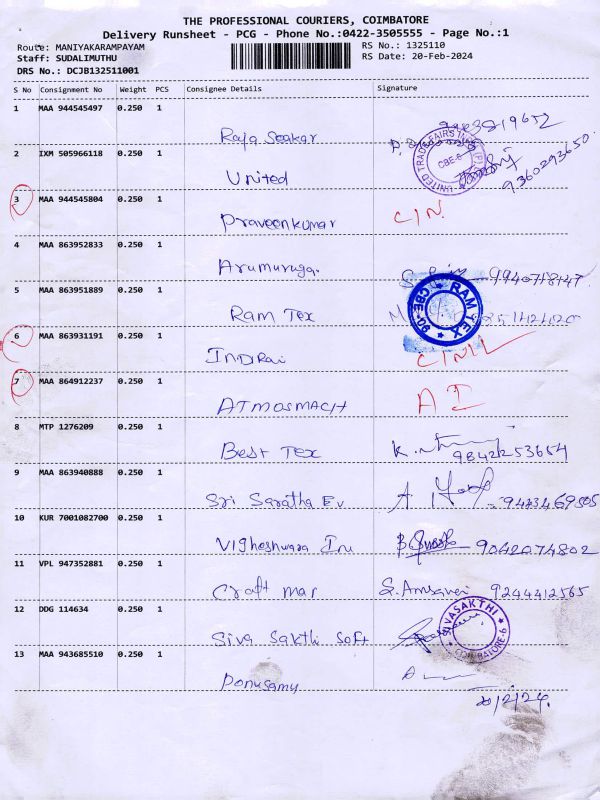 THE PROFESSIONAL COURIERS, COIMBATORE
Delivery Runsheet - PCG - Phone No.:0422-3505555 - Page No.:1
Route: MANIYAKARAMPAYAM
RS No.: 1325110
Staff: SUDALIMUTHU
RS Date: 20-Feb-2024
DRS No.: DCJB132511001
S No Consignment No Weight PCS Consignee Details Signature
1 MAA 944545497 0.250 1
Raja Seakar
9363819652
2 IXM 505966118 0.250 1
United
UNITED TRADE FAIRS CBE-6
9360293650
3 MAA 944545804 0.250 1
Praveenkumar CIN.
4 MAA 863952833 0.250 1
Arumuruga. 9940718147
5 MAA 863951889 0.250 1
Ram Tex
RAM TEX CBE-06
6 MAA 863931191 0.250 1
INDRai
7 MAA 864912237 0.250 1
ATMOSMACH AI
8 MTP 1276209 0.250 1
Best Tex 9842253654
9 MAA 863940888 0.250 1
Sri Saratha Ev
10 KUR 7001082700 0.250 1
Vigheshwara Inu 9042074802
11 VPL 947352881 0.250 1
Craft mar 9244412565
12 DDG 114634 0.250 1
Siva Sakthi Soft
SIVASAKTHI COIMBATORE-6
13 MAA 943685510 0.250 1
Ponusamy
20/2/24.